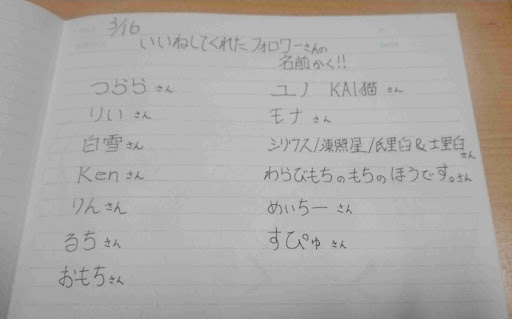 3/16
いいねしてくれたフォロワーさんの
名前かく!!
つららさん
りいさん
白雪さん
Kenさん
りんさん
るちさん
おもちさん
ユノ KAI猫さん
モナさん
シリウス/凍照星/氏里白&士里白
さん
わらびもちのもちのほうです。さん
めぃちーさん
すぴゅさん